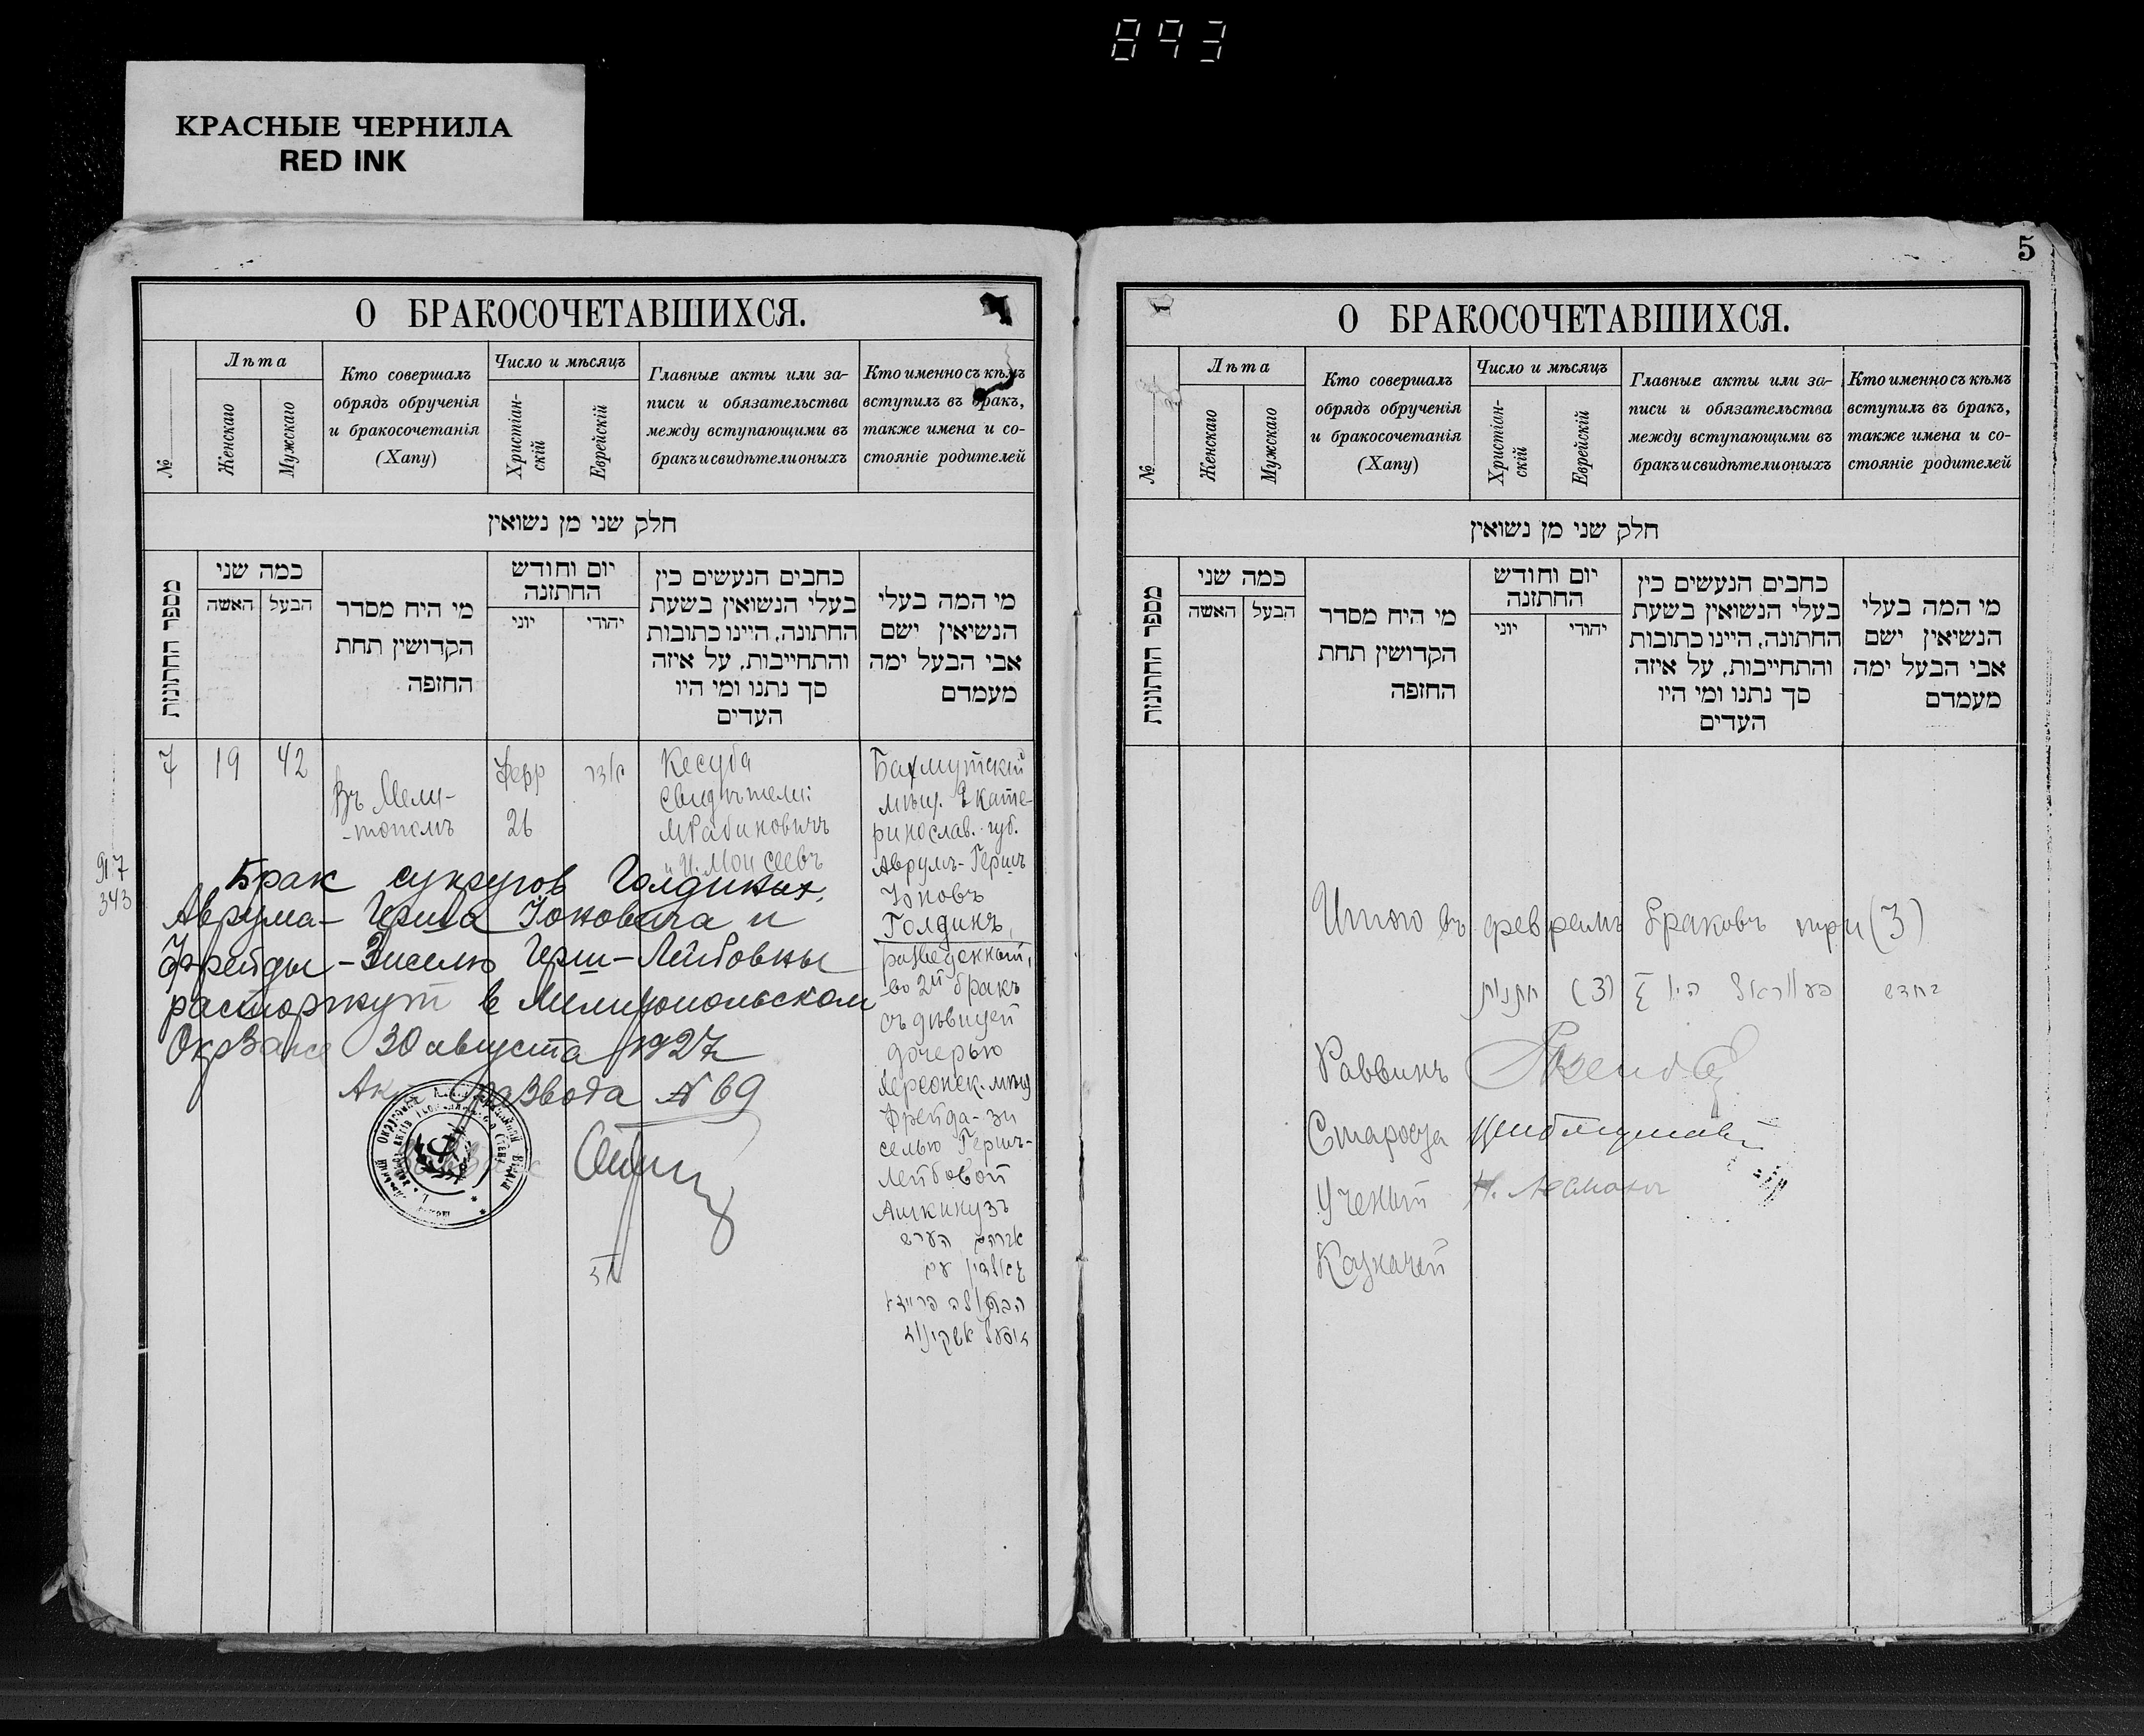 893
КРАСНЫЕ ЧЕРНИЛА
RED INK
О БРАКОСОЧЕТАВШИХСЯ.
№
Лѣта
Женскаго
Мужскаго
Кто совершалъ
обрядъ обрученія
и бракосочетанія
(Хапу)
Число и мѣсяцъ
Христіан-
скій
Еврейскій
Главные акты или за-
писи и обязательства
между вступающими въ
бракъ и свидѣтели оныхъ
Кто именно съ кѣмъ
вступилъ въ бракъ,
также имена и со-
стояніе родителей
חלק שני מן נשואין
מספר החתונות
כמה שני
האשה
הבעל
מי היח מסדר
הקדושין תחת
החופה
יום וחודש
החתונה
יוני
יהודי
כחבים הנעשים כין
בעלי הנשואין בשעת
החתונה, היינו כתובות
והתחייבות, על איזה
סך נתנו ומי היו
העדים
מי המה בעלי
הנשיאין ישם
אבי הבעל ימה
מעמדם
7
19
42
Въ Мели-
-тополѣ
Февр
26
אדר
Кесуба
Свидѣтели:
М Рабиновичъ
и И. Моисеевъ
Бахмутскій
мѣщ. Екате-
ринослав. губ.
Аврумъ-Гершъ
Іоновъ
Голдинъ,
разведенный,
во 2й бракъ
съ дѣвицей
дочерью
Херсонск. мѣщ
Фрейда-Зи
селью Гершъ-
Лейбовой
Ашкинузъ
אברהם הערש
גאלדין עם
הבתולה פריידא
זיסעל אשקינוז
917
343
Брак супругов Голдиных,
Аврума-Герша Іоновича и
Фрейды-Зисель Герш-Лейбовны
расторгнут в Мелитопольском
ОкрЗагсе 30 августа 1927
Акт развода № 69
5
О БРАКОСОЧЕТАВШИХСЯ.
№
Лѣта
Женскаго
Мужскаго
Кто совершалъ
обрядъ обрученія
и бракосочетанія
(Хапу)
Число и мѣсяцъ
Христіан-
скій
Еврейскій
Главные акты или за-
писи и обязательства
между вступающими въ
бракъ и свидѣтели оныхъ
Кто именно съ кѣмъ
вступилъ въ бракъ,
также имена и со-
стояніе родителей
חלק שני מן נשואין
מספר החתונות
כמה שני
האשה
הבעל
מי היח מסדר
הקדושין תחת
החופה
יום וחודש
החתונה
יוני
יהודי
כחבים הנעשים כין
בעלי הנשואין בשעת
החתונה, היינו כתובות
והתחייבות, על איזה
סך נתנו ומי היו
העדים
מי המה בעלי
הנשיאין ישם
אבי הבעל ימה
מעמדם
Итого въ февралѣ браковъ три (3)
בחדש פעווראל היו ג (3) חתונות
Раввинъ
Староста
Ученый
Казначей